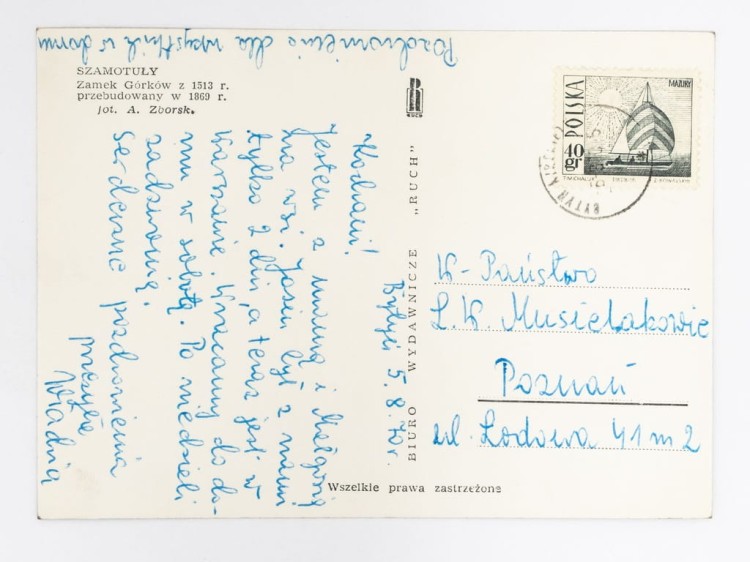 SZAMOTUŁY
Zamek Górków z 1513 r.
przebudowany w 1869 r.
fot. A. Zborsk.
RUCH
BIURO WYDAWNICZE „RUCH"
Wszelkie prawa zastrzeżone
POLSKA
MAZURY
40
gr
BYTYŃ
Bytyń 5.8.70r.
Kochani!
Jestem z mamą i Małgosią
na wsi. był z nami
tylko 2 dni, a teraz jest w
Warszawie. Wracamy do do-
mu w sobotę. Po niedzieli
zadzwonię.
Serdeczne pozdrowienia
przesyła
Pozdrowienia dla wszystkich w domu
W-Państwo
L.W. Musielakowie
Poznań
ul. Lodowa 41 m 2